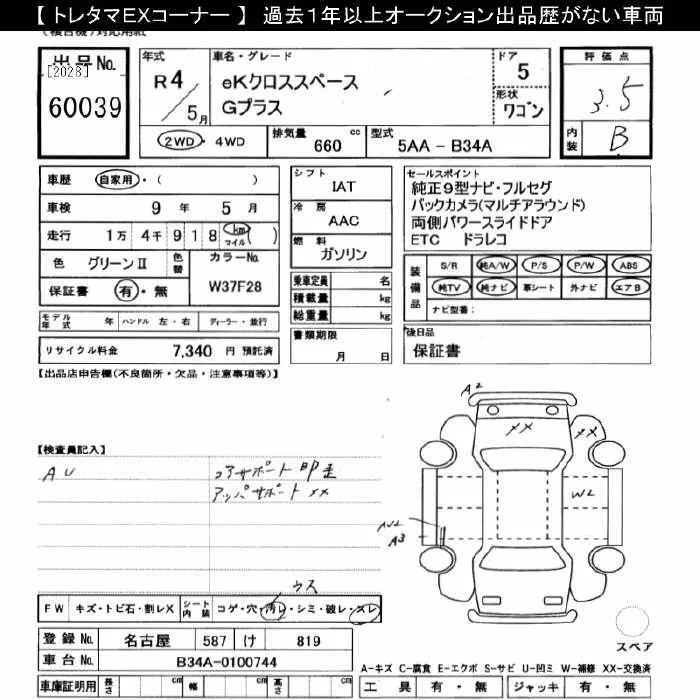 【 トレタマEXコーナー 】 過去1年以上オークション出品歴がない車両
出品No.
[2028]
60039
年式
R4/5月
車名・グレード
eKクロススペース
Gプラス
ドア
5
形状
ワゴン
評価点
3.5
内装
B
2WD・4WD
排気量
660 cc
型式
5AA - B34A
車歴
自家用・( )
車検
9 年 5 月
走行
1万 4千 9 1 8 km マイル ( )
色
グリーンⅡ
色替
カラーNo.
W37F28
保証書
有・無
シフト
IAT
冷房
AAC
燃料
ガソリン
乗車定員 名
積載量 kg
総重量 kg
書類期限
月 日
セールスポイント
純正9型ナビ・フルセグ
バックカメラ(マルチアラウンド)
両側パワースライドドア
ETC ドラレコ
装備品
S/R 純A/W P/S P/W ABS
純TV 純ナビ 革シート 外ナビ エアB
ナビ型番:
モデル年式 年 ハンドル 左・右 ディーラー・並行
リサイクル料金 7,340 円 預託済
後日品
保証書
【出品店申告欄(不良箇所・欠品・注意事項等)】
【検査員記入】
AU
コアサポート 凹 歪
アッパサポート XX
A2
XX
XX
W2
AU2
A3
ウス
FW キズ・トビ石・割レX シート内装 コゲ・穴・汚レ・シミ・破レ・スレ
登録 No. 名古屋 587 け 819
車台 No. B34A-0100744
スペア
車庫証明用 長さ cm 幅 cm 高さ cm
A-キズ C-腐食 E-エクボ S-サビ U-凹ミ W-補修 XX-交換済
工具 有・無 ジャッキ 有・無